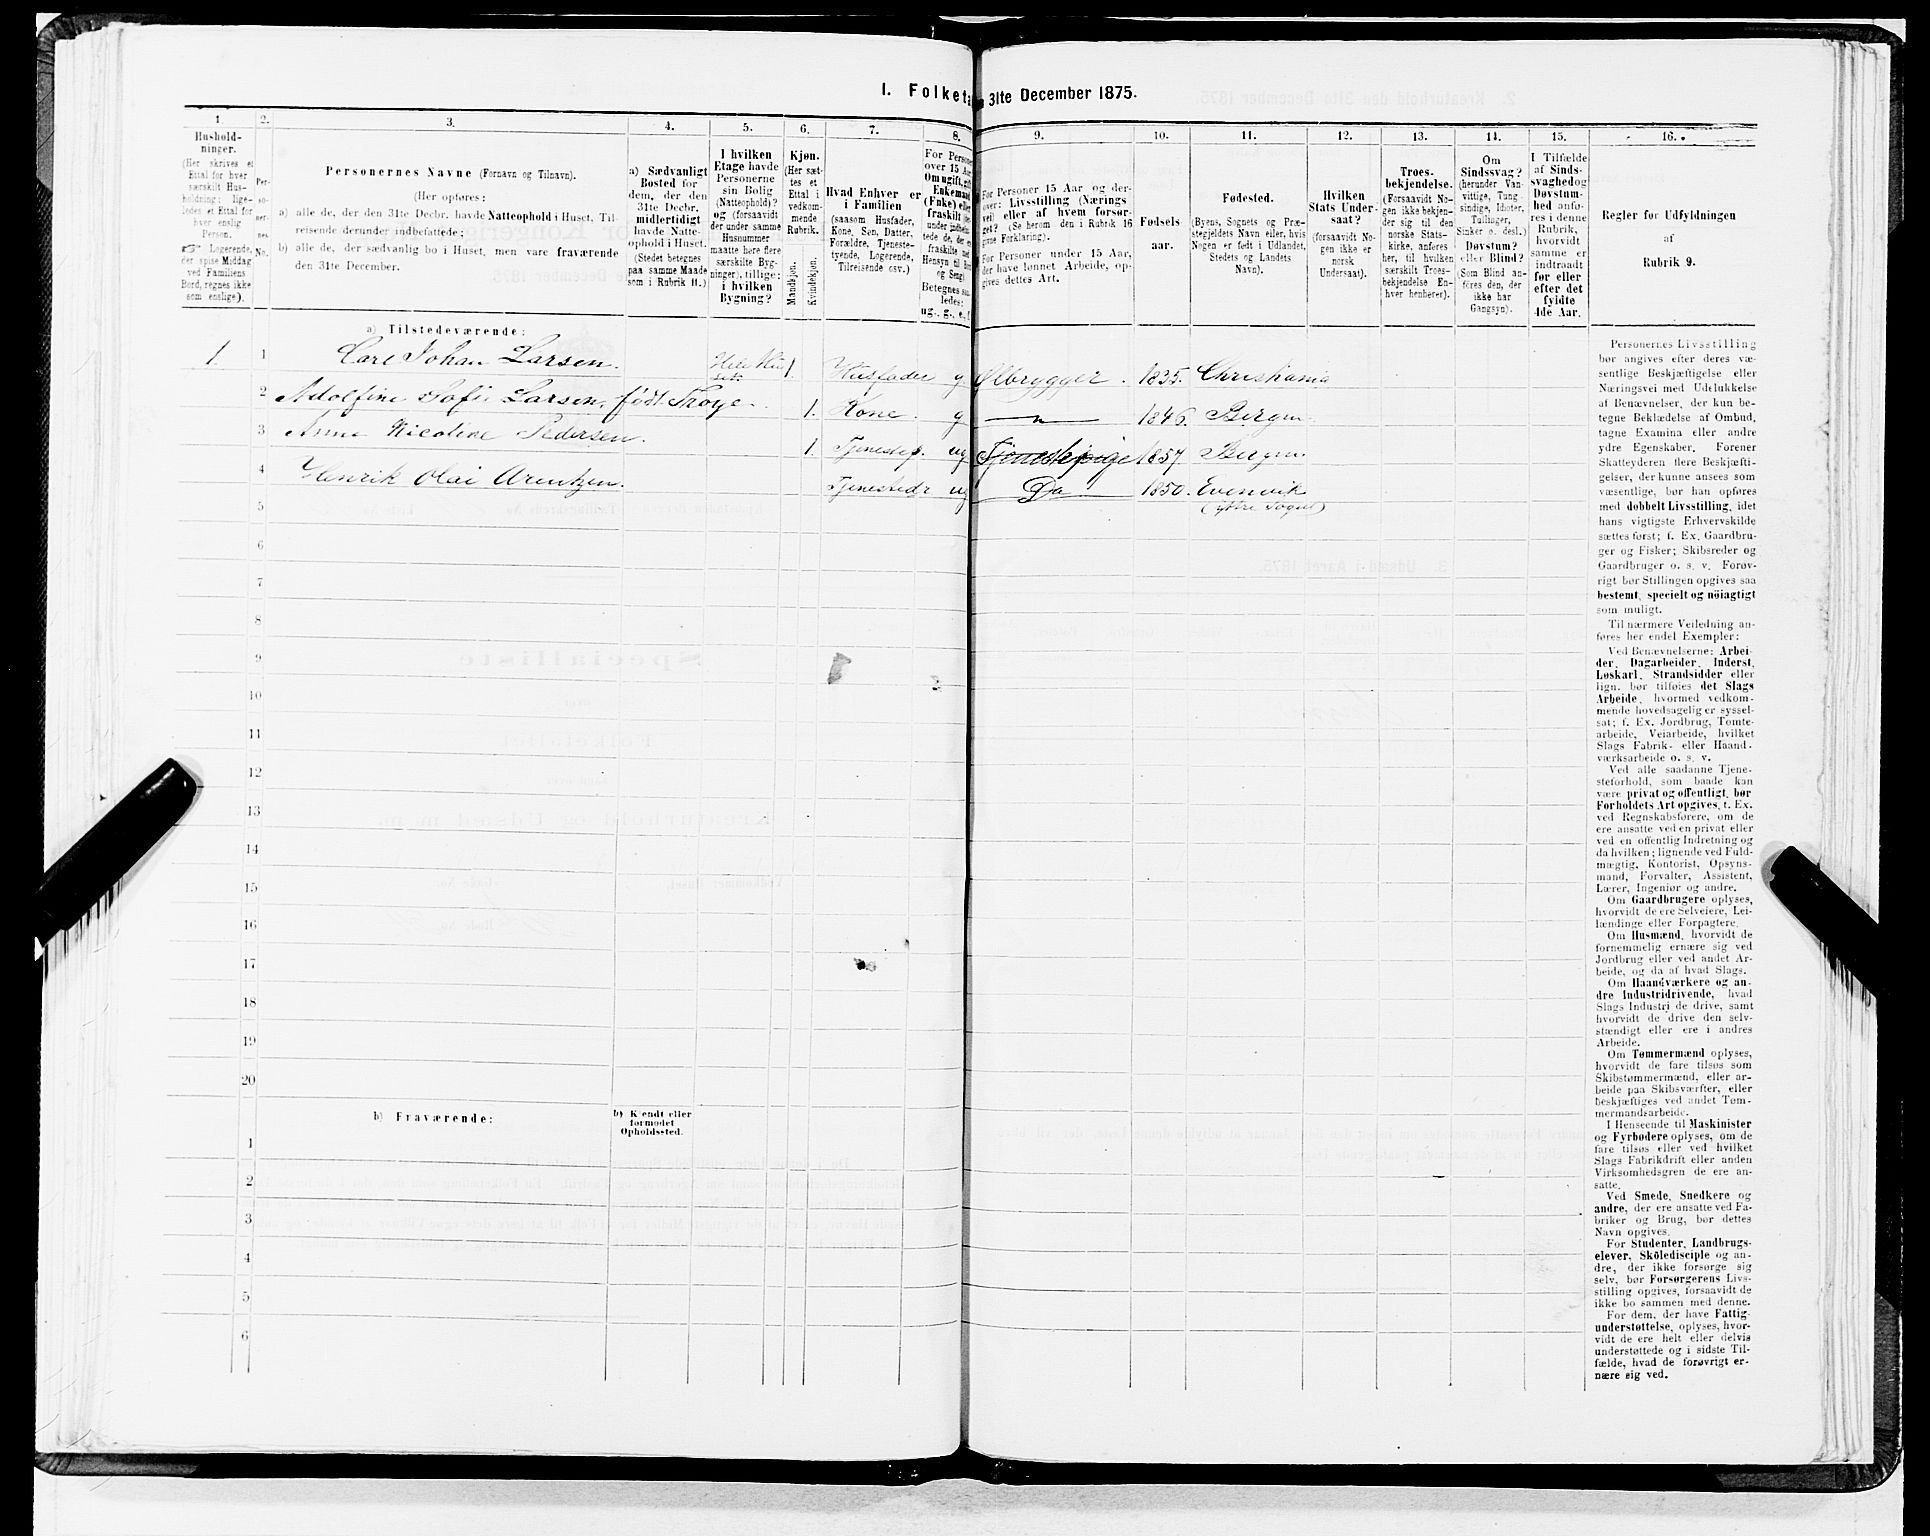 1. Folketa
31te December 1875.
1.
Hushold-
ninger.
(Her skrives et
Ettal for hver
særskilt Hus-
holdning; lige-
ledes et Ettal for
hver enslig
Person.
Logerende,
der spise Middag
ved Familiens
Bord, regnes ikke
som enslige).
2.
Per-
so-
ner-
nes
No.
3.
Personernes Navne (Fornavn og Tilnavn).
(Her opføres:
a) alle de, der den 31te Decbr. havde Natteophold i Huset. Til-
reisende derunder indbefattede;
b) alle de, der sædvanlig bo i Huset, men vare fraværende
den 31te December.
4.
a) Sædvanligt
Bosted for
dem, der den
31te Decbr.
midlertidigt
havde Natte-
ophold i Huset.
(Stedet betegnes
paa samme Maade
som i Rubrik 11.)
5.
I hvilken
Etage havde
Personerne
sin Bolig
(Natteophold)?
og (forsaavidt
der under samme
Husnummer
maatte høre flere
særskilte Byg-
ninger), tillige:
i hvilken
Bygning?
6.
Kjøn.
(Her sæt-
tes et
Ettal i
vedkom-
mende
Rubrik.
Mandkjøn.
Kvindekjøn.
7.
Hvad Enhver er
i Familien
(saasom Husfader,
Kone, Søn, Datter,
Forældre, Tjeneste-
tyende, Logerende,
Tilreisende osv.)
8.
For Persone
over 15 Aar
Om ugift, gift
Enkemand
(Enke) eller
fraskilt
Betegnes saa-
ledes:
ug., g., e., f.
9.
For Personer 15 Aar og der-
over: Livsstilling (Nærings
vei) eller af hvem forsør-
get? (Se herom den i Rubrik 16
givne Forklaring).
For Personer under 15 Aar,
der have lønnet Arbeide, op-
gives dettes Art.
10.
Fødsels
aar.
11.
Fødested.
(Byens, Sognets og Præ-
stegjeldets Navn eller, hvis
Nogen er født i Udlandet,
Stedets og Landets
Navn).
12.
Hvilken
Stats Under-
saat?
(forsaavidt No-
gen ikke er
norsk
Undersaat).
13.
Troes-
bekjendelse.
(Forsaavidt No-
gen ikke bekjen-
der sig til den
norske Stats-
kirke, anføres
her, til hvilken
særskilt Troes-
bekjendelse En-
hver henhører).
14.
Om
Sindssvag?
(herunder Van-
vittige, Tung
sindige, Idioter,
Tullinger,
Sinker o. desl.)
Døvstum?
eller Blind?
(Som Blind an-
føres den, der
ikke har
Gangsyn).
15.
I Tilfælde
af Sinds-
svaghed og
Døvstum-
hed anfø-
res i denne
Rubrik,
hvorvidt
samme er
indtraadt
før eller
efter det
fyldte
4de Aar.
16.
Regler for Udfyldningen
af
Rubrik 9.
a) Tilstedeværende:
1. 1 Carl Johan Larsen. Hele Hu set. 1. Husfader g. Ølbrygger. 1835. Christiania
2 Adolfine Sofie Larsen, født Thoye. 1. Kone. g — " — 1846. Bergen
3 Anne Nicoline Pedersen. 1. Tjenestep. ug Tjenestepige 1857. Bergen
4 Henrik Olai Arentzen. Tjenestedr ug Do 1850. Evenvik
(Yttre Sogn)
5
6
7
8
9
10
11
12
13
14
15
16
17
18
19
20
b) Fraværende:
b) Kjendt eller
formodet
Opholdssted.
1
2
3
4
5
6
Personernes Livsstilling
bør angives efter deres væ-
sentlige Beskjæftigelse eller
Næringsvei med Udelukkelse
af Benævnelser, der kun be-
tegne Beklædelse af Ombud,
tagne Examina eller andre
ydre Egenskaber. Forener
Skatteyderen flere Beskjæfti-
gelser, der kunne ansees som
væsentlige, bør han opføres
med dobbelt Livsstilling, idet
hans vigtigste Erhvervskilde
sættes først; f. Ex. Gaardbru-
ger og Fisker; Skibsreder og
Gaardbruger o. s. v. Forøv-
rigt bør Stillingen opgives saa
bestemt, specielt og nöiagtigt
som muligt.
Til nærmere Veiledning an-
føres her endel Exempler:
Ved Benævnelserne: Arbei-
der, Dagarbeider, Inderst,
Løskarl, Strandsidder eller
lign. bør tilføies det Slags
Arbeide, hvormed vedkom-
mende hovedsagelig er syssel-
sat; f. Ex. Jordbrug, Tomte-
arbeide, Veiarbeide, hvilket
Slags Fabrik- eller Haand-
værksarbeide o. s. v.
Ved alle saadanne Tjene-
steforhold, som baade kan
være privat og offentligt, bør
Forholdets Art opgives, t. Ex.
ved Regnskabsførere, om de
ere ansatte ved en privat eller
ved en offentlig Indretning og
da hvilken; lignende ved Fuld-
mægtig, Kontorist, Opsyns-
mand, Forvalter, Assistent,
Lærer, Ingeniør og andre.
Om Gaardbrugere oplyses,
hvorvidt de ere Selveiere, Lei-
lændinge eller Forpagtere.
Om Husmænd, hvorvidt de
fornemmelig ernære sig ved
Jordbrug eller ved andet Ar-
beide, og da af hvad Slags.
Om Haandværkere og an-
dre Industridrivende, hvad
Slags Industri de drive, samt
hvorvidt de drive den selv-
stændigt eller ere i andres
Arbeide.
Om Tømmermænd oplyses,
hvorvidt de fare tilsøs som
Skibstømmermænd, eller ar-
beide paa Skibsværfter, eller
beskjæftiges ved andet Tøm-
mermandsarbeide.
I Henseende til Maskinister
og Fyrbødere oplyses, om de
fare tilsøs eller ved hvilket
Slags Fabrikdrift eller anden
Virksomhedsgren de ere an-
satte.
Ved Smede, Snedkere og
andre, der ere ansatte ved Fa-
briker og Brug, bør dettes
Navn opgives.
For Studenter, Landbrugs-
elever, Skoledisciple og an-
dre, der ikke forsørge sig
selv, bør Forsørgerens Livs-
stilling opgives, forsaavidt de
ikke bo sammen med denne.
For dem, der have Fattig-
understøttelse, oplyses, hvor-
vidt de ere helt eller delvis
understøttede og i sidste Til-
fælde, hvad de forøvrigt er-
nære sig ved.